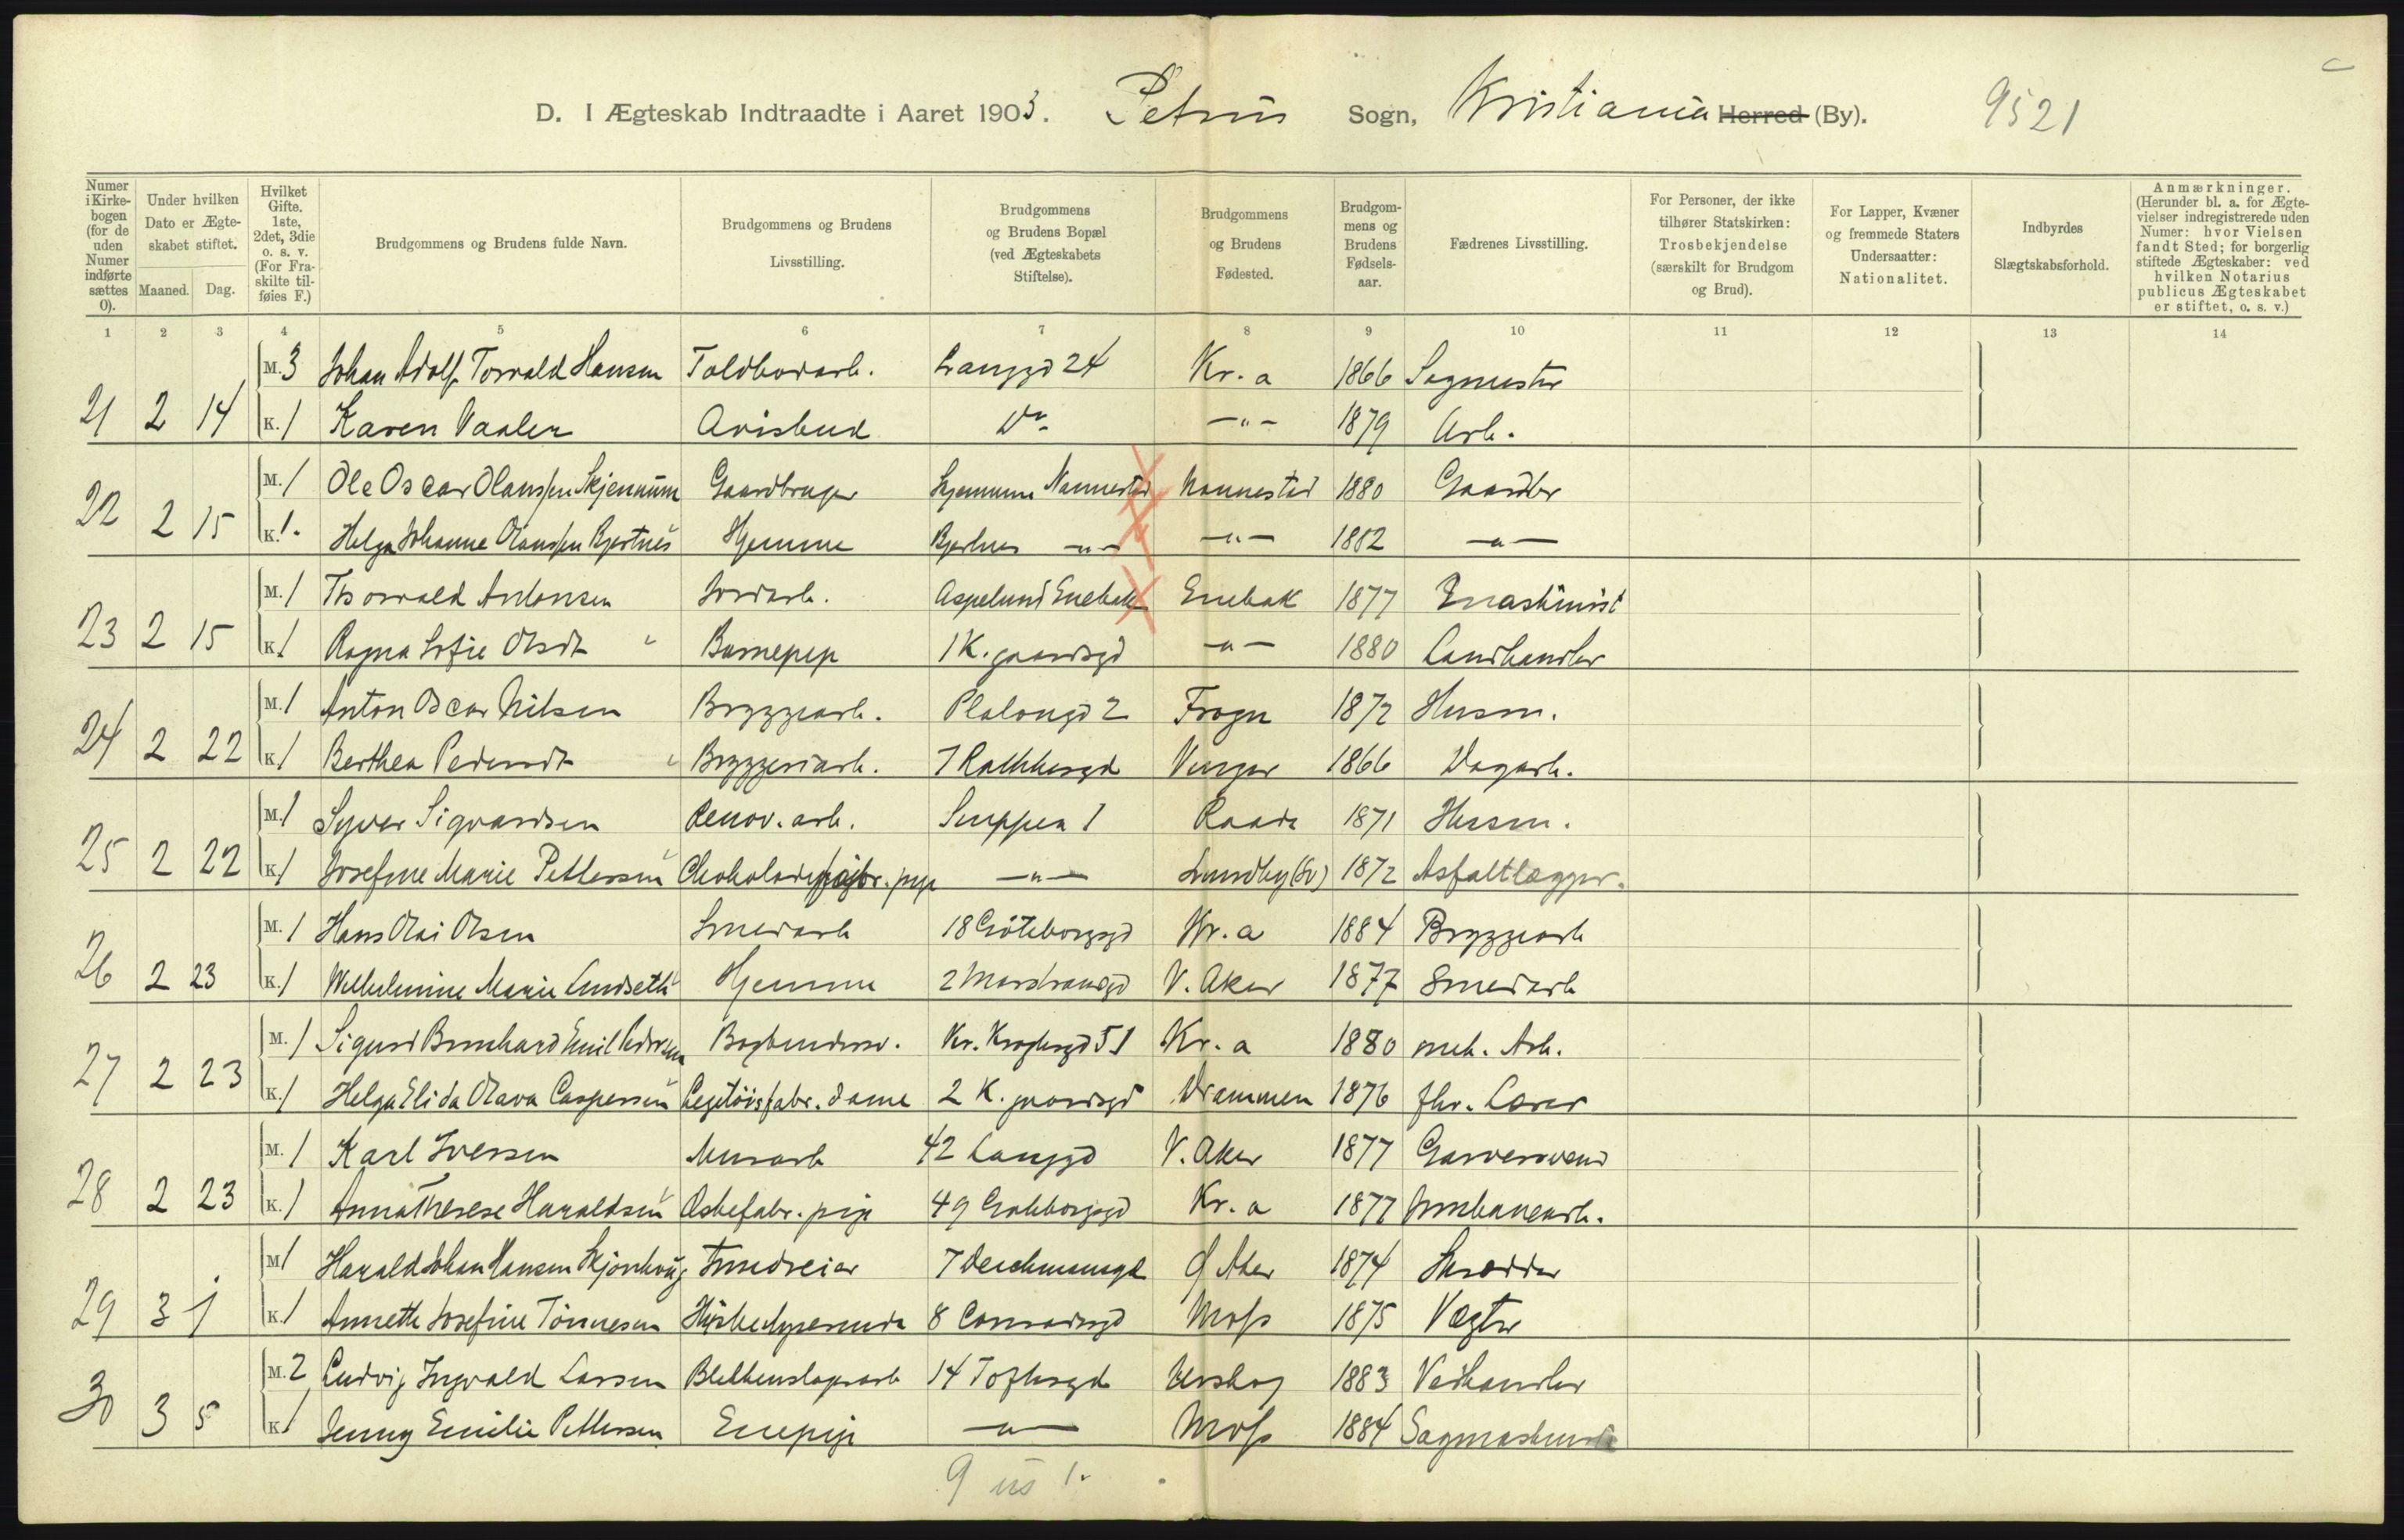 D. I Ægteskab Indtraadte i Aaret 1903. Petrus Sogn, Kristiania Herred (By). 9521
Numer i Kirkebogen (for de uden Numer indførte sættes 0).
Under hvilken Dato er Ægteskabet stiftet.
Maaned. Dag.
Hvilket Gifte. 1ste, 2det, 3die o. s. v. (For Fraskilte tilføies F.)
Brudgommens og Brudens fulde Navn.
Brudgommens og Brudens Livsstilling.
Brudgommens og Brudens Bopæl (ved Ægteskabets Stiftelse).
Brudgommens og Brudens Fødested.
Brudgommens og Brudens Fødselsaar.
Fædrenes Livsstilling.
For Personer, der ikke tilhører Statskirken: Trosbekjendelse (særskilt for Brudgom og Brud).
For Lapper, Kvæner og fremmede Staters Undersaatter: Nationalitet.
Indbyrdes Slægtskabsforhold.
Anmærkninger. (Herunder bl. a. for Ægtevielser indregistrerede uden Numer: hvor Vielsen fandt Sted; for borgerlig stiftede Ægteskaber: ved hvilken Notarius publicus Ægteskabet er stiftet, o. s. v.)
1 2 3 4 5 6 7 8 9 10 11 12 13 14
M. 3 Johan Adolf Torvald Hansen Toldbodarb. Langgd 24 Kr.a 1866 Sagmester
21 2 14 K. 1 Karen Vaaler Avisbud Do. —"— 1879 Arb.
M. 1 Ole Oscar Olaussen Skjennum Gaardbruger Skjennum Nannestad Nannestad 1880 Gaardbr
22 2 15 K. 1. Helga Johanne Olaussen Bjertnes Hjemme Bjertnes —"— —"— 1882 —"—
M. 1 Thorvald Antonsen Jordarb. Aspelund Enebak Enebak 1877 Maskinist
23 2 15 K. 1 Ragna Sofie Olsdt Barnepige 1 K. gaardsgd —"— 1880 Landhandler
M. 1 Anton Oscar Nilsen Bryggearb. Platougd 2 Frogn 1872 Husm.
24 2 22 K. 1 Berthea Pedersdt Bryggeriarb. 7 Rathkesgd Vinger 1866 Dagarb.
M. 1 Syver Sigvardsen Renov. arb. Smuppen 1 Raade 1871 Husm.
25 2 22 K. 1 Josefine Marie Pettersen Chokoladefabr. pige —"— Lundby (Sv) 1872 Asfaltlægger.
M. 1 Hans Olai Olsen Smedarb 18 Göteborggd Kr.a 1884 Bryggearb
26 2 23 K. 1 Wilhelmine Marie Lundseth Hjemme 2 Marstrandgd V. Aker 1877 Smedarb
M. 1 Sigurd Bernhard Emil Andersen Bogbindersv. Kr. Kroghsgd 51 Kr.a 1880 mek. Arb.
27 2 23 K. 1 Helga Elida Olava Caspersen Legetöisfabr. dame 2 K. gaardsgd Drammen 1876 fhv. Lærer
M. 1 Karl Iversen Murarb 42 Langgd V. Aker 1877 Garversvend
28 2 23 K. 1 Anna Therese Haraldsen Æskefabr. pige 49 Göteborggd Kr.a 1877 Jernbanearb.
M 1 Harald Johan Hansen 7 Deichmansgd Ø Aker 1874 Skrædder
29 3 1 K. 1 Annette Josefine Tönnesen 8 Conradsgd Moss 1875 Vægter
M. 2 Ludvig Ingvald Larsen Blikkenslagerarb 14 Toftesgd Urskog 1883 Vedhandler
30 3 5 K 1 Jenny Emilie Pettersen Enepige —"— Moss 1884 Sagmaskinist